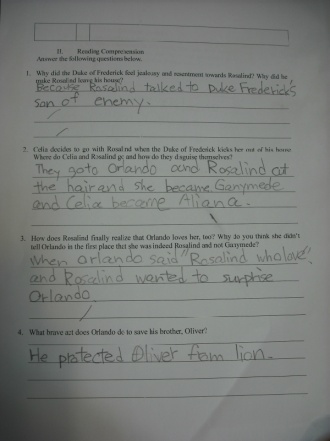 II. Reading Comprehension
Answer the following questions below.
1. Why did the Duke of Frederick feel jealousy and resentment towards Rosalind? Why did he
make Rosalind leave his house?
Because Rosalind talked to Duke Frederick's
son of enemy.
2. Celia decides to go with Rosalind when the Duke of Frederick kicks her out of his house.
Where do Celia and Rosalind go and how do they disguise themselves?
They go to Orlando and Rosalind at
the hair and she became Ganymede
and Celia became Aliana.
3. How does Rosalind finally realize that Orlando loves her, too? Why do you think she didn't
tell Orlando in the first place that she was indeed Rosalind and not Ganymede?
when orlando said "Rosalind who love"
and Rosalind wanted to surprise
Orlando.
4. What brave act does Orlando do to save his brother, Oliver?
He protected Oliver from lian.